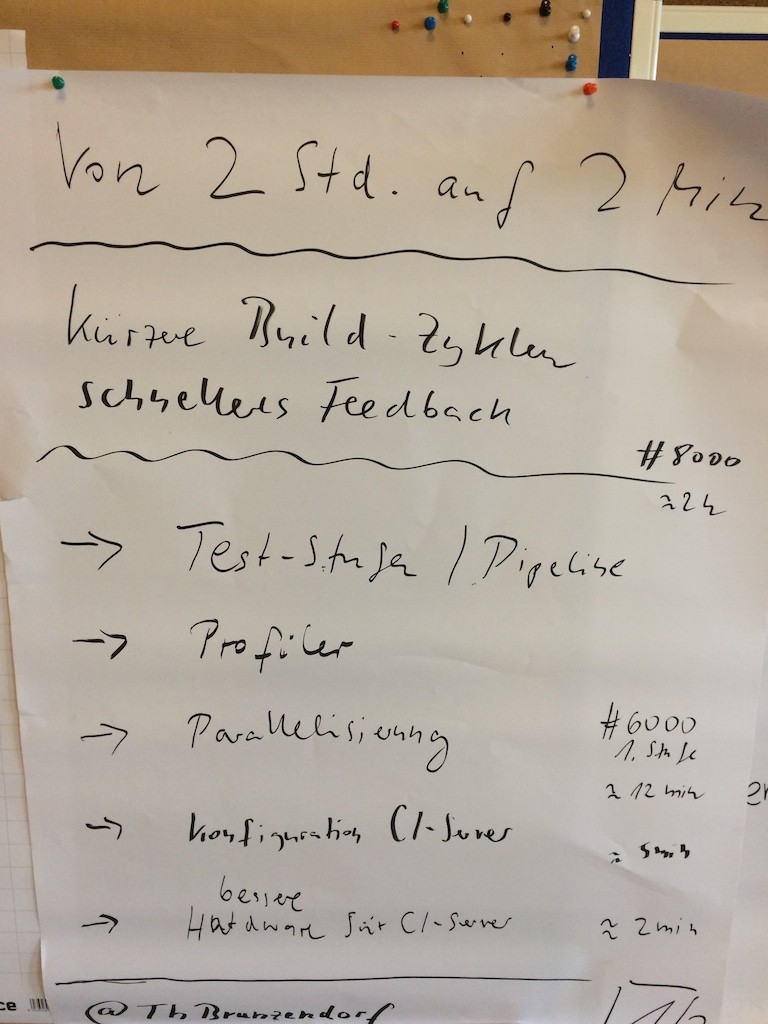 Von 2 Std. auf 2 Min
Kürzere Build-Zyklen
schnelleres Feedback
#8000
≈2h
→ Test-Stufen / Pipeline
→ Profiler
→ Parallelisierung
#6000
1. Stufe
≈ 12 min
→ Konfiguration CI-Server
≈ 5min
bessere
→ Hardware für CI-Server ≈ 2min
@ThBrunzendorf